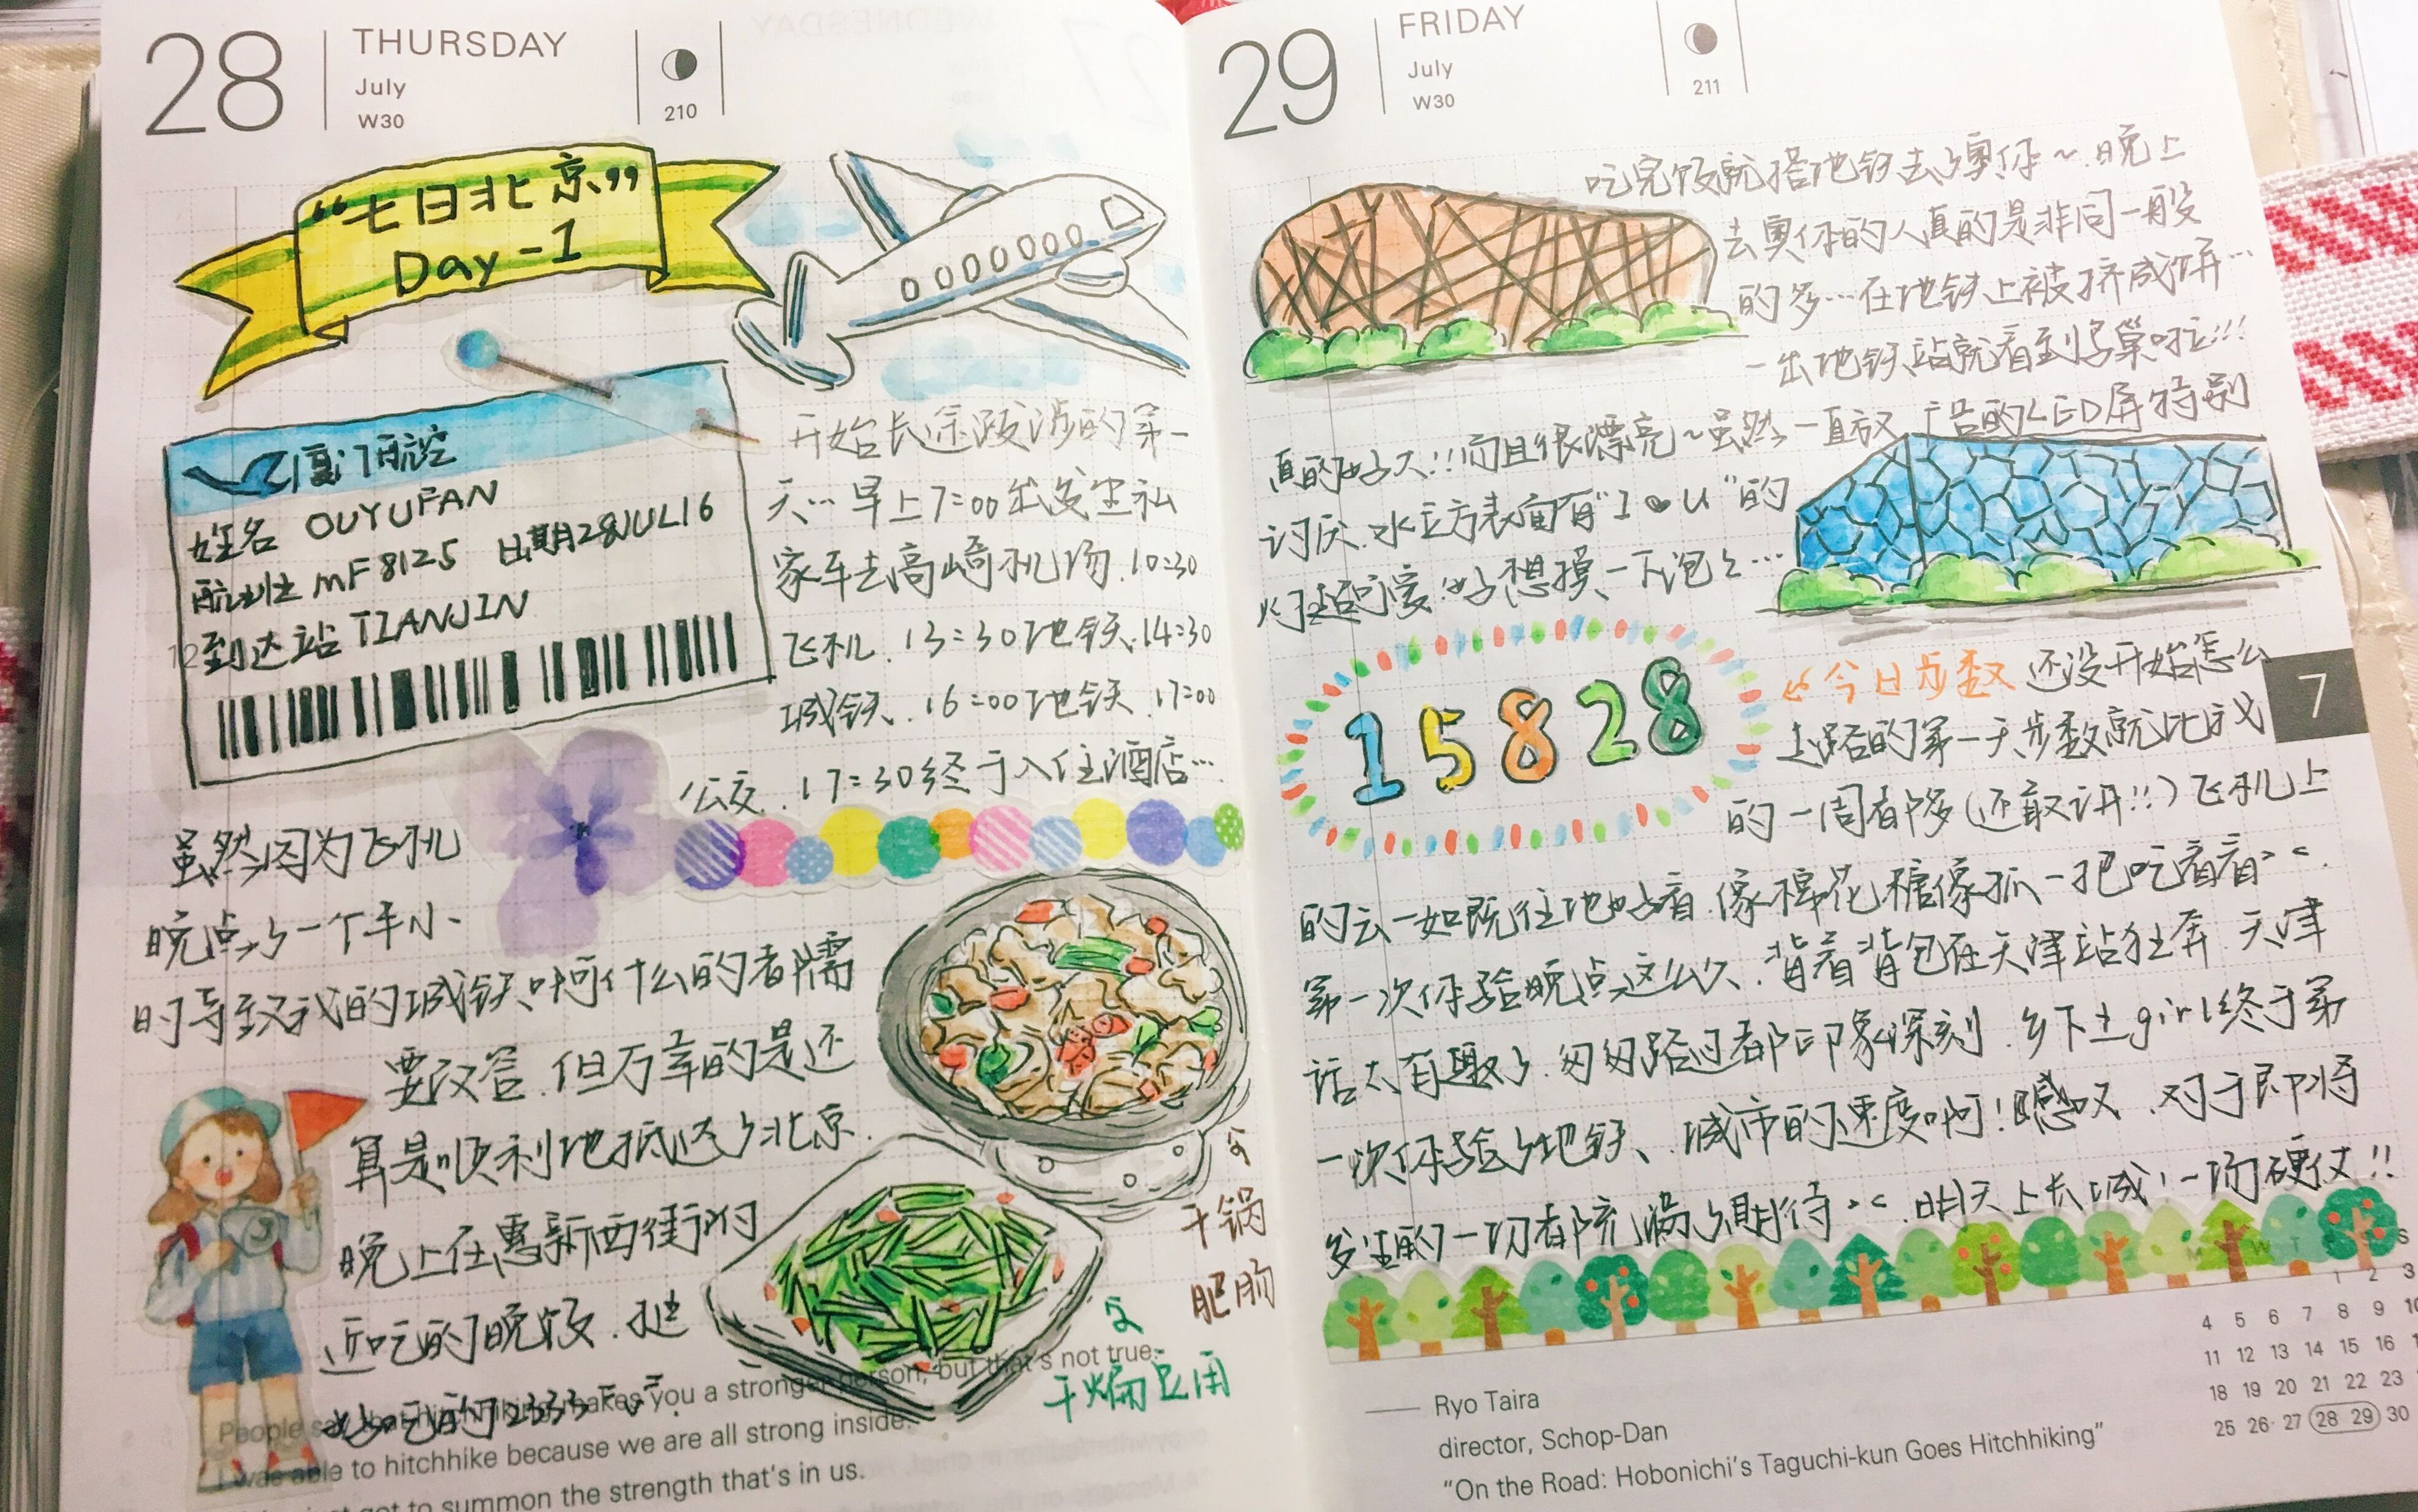 28
THURSDAY
July
W30
210
“七日北京”
Day-1
厦门航空
姓名 OUYUFAN
航班 MF8125 日期28JUL16
到达站 TIANJIN
12
开始长途跋涉的第一
天…早上7:00出发坐私
家车去高崎机场.10:30
飞机.13:30地铁.14:30
城铁.16:00地铁.17:00
公交.17:30终于入住酒店…
虽然因为飞机
晚点了一个半小
时导致我的城铁啊什么的都需
要改签.但万幸的是还
算是顺利地抵达了北京.
晚上在惠新西街附
近吃的晚饭.挺
好吃的2333
干锅
肥肠
干煸豆角
People say that hitchhiking makes you a stronger person, but that's not true.
I was able to hitchhike because we are all strong inside.
got to summon the strength that's in us.
29
FRIDAY
July
W30
211
吃完饭就搭地铁去了奥体~.晚上
去奥体的人真的是非同一般
的多…在地铁上被挤成饼…
一出地铁站就看到鸟巢啦!!!
真的好大!!而且很漂亮~虽然一直放广告的LED屏特别
讨厌.水立方表面有“I ♥ U”的
灯超可爱!好想摸一下泡泡…
15828
今日步数 还没开始怎么
走路的第一天步数就比宅
的一周都多(还敢讲!!)飞机上
的云一如既往地好看.像棉花糖像抓一把吃看看><.
第一次体验晚点这么久.背着背包在天津站狂奔.天津
话太有趣了.匆匆路过都印象深刻.乡下土girl终于第
一次体验了地铁、城市的速度啊!感叹.对于即将
发生的一切都充满了期待><.明天上长城!一场硬仗!!
7
M W T S
1 2 3
4 5 6 7 8 9 10
11 12 13 14 15 16
18 19 20 21 22 23
25 26 27 28 29 30
Ryo Taira
director, Schop-Dan
“On the Road: Hobonichi's Taguchi-kun Goes Hitchhiking”